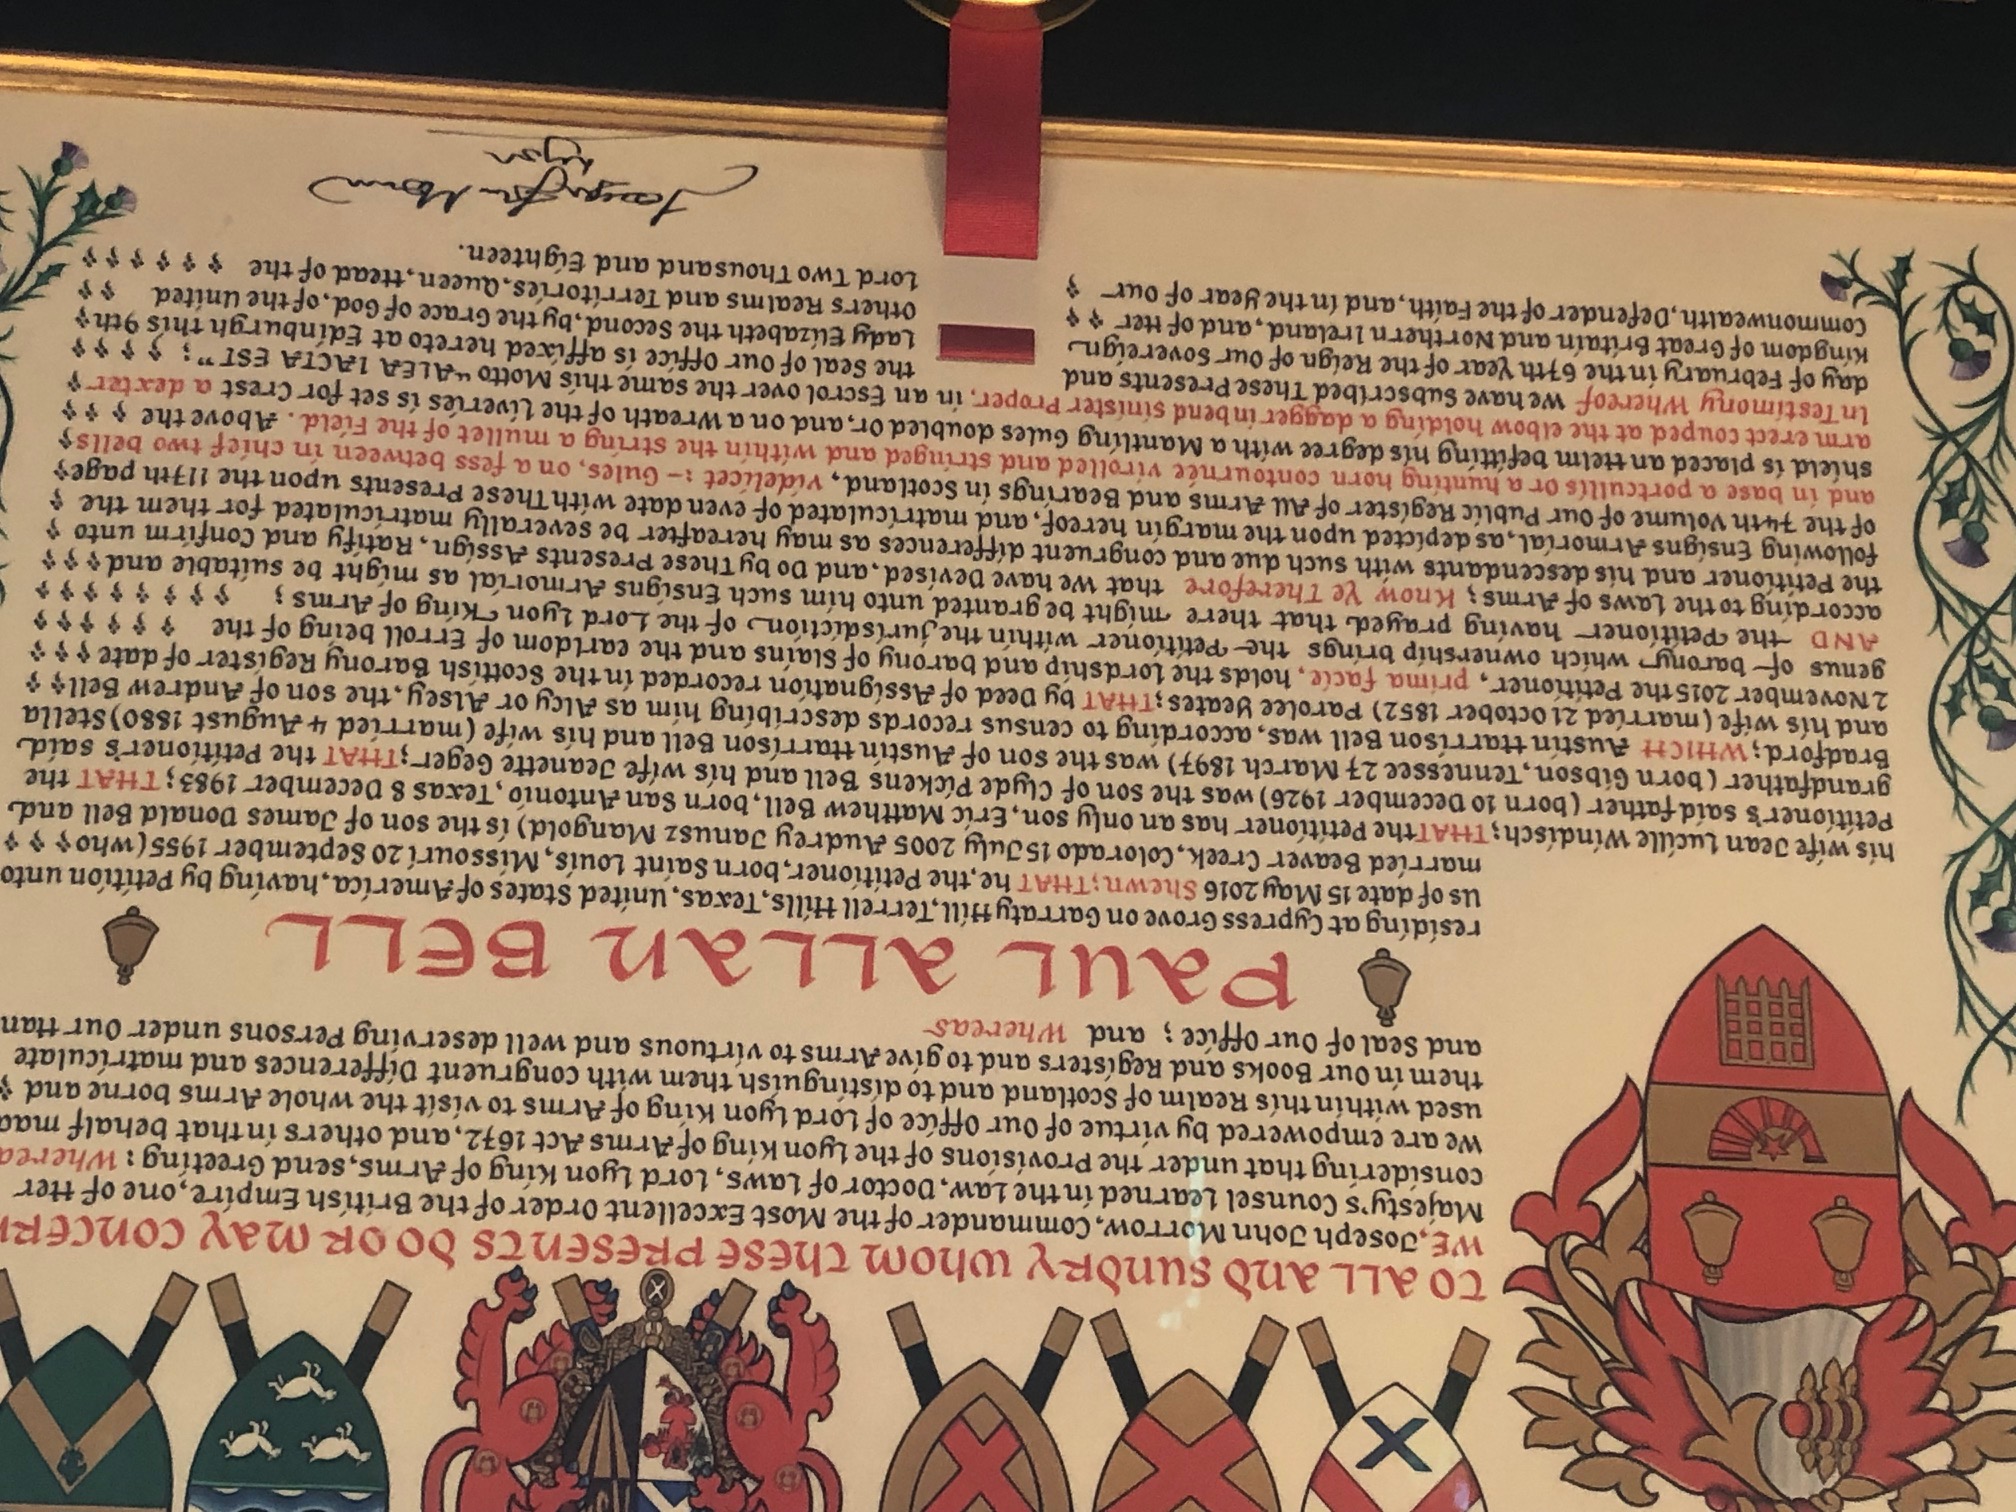 TO ALL AND SUNDRY WHOM THESE PRESENTS DO OR MAY CONCERN
WE, Joseph John Morrow, Commander of the Most Excellent Order of the British Empire, one of Her
Majesty's Counsel Learned in the Law, Doctor of Laws, Lord Lyon King of Arms, send Greeting: Wherea
considering that under the Provisions of the Lyon King of Arms Act 1672, and others in that behalf mad
we are empowered by virtue of Our Office of Lord Lyon King of Arms to visit the whole Arms borne and
used within this Realm of Scotland and to distinguish them with congruent Differences and matriculate
them in Our Books and Registers and to give Arms to virtuous and well deserving Persons under Our Han
and Seal of Our Office; and Whereas
PAUL ALLAN BELL
residing at Cypress Grove on Garraty Hill, Terrell Hills, Texas, United States of America, having by Petition unto
Us of date 15 May 2016 Shewn; THAT he, the Petitioner, born Saint Louis, Missouri 20 September 1955 (who
married Beaver Creek, Colorado 15 July 2005 Audrey Janusz Mangold) is the son of James Donald Bell and
his wife Jean Lucille Windisch; THAT the Petitioner has an only son, Eric Matthew Bell, born San Antonio, Texas 8 December 1983; THAT the
Petitioner's said father (born 10 December 1926) was the son of Clyde Pickens Bell and his wife Jeanette Geger; THAT the Petitioner's said
grandfather (born Gibson, Tennessee 27 March 1897) was the son of Austin Harrison Bell and his wife (married 4 August 1880) Stella
Bradford; WHICH Austin Harrison Bell was, according to census records describing him as Alcy or Alsey, the son of Andrew Bell
and his wife (married 21 October 1852) Parolee Yeates; THAT by Deed of Assignation recorded in the Scottish Barony Register of date
2 November 2015 the Petitioner, prima facie, holds the Lordship and barony of Slains and the earldom of Erroll being of the
genus of barony which ownership brings the Petitioner within the jurisdiction of the Lord Lyon King of Arms;
AND the Petitioner having prayed that there might be granted unto him such Ensigns Armorial as might be suitable and
according to the Laws of Arms; Know Ye Therefore that We have Devised, and Do by These Presents Assign, Ratify and Confirm unto
the Petitioner and his descendants with such due and congruent differences as may hereafter be severally matriculated for them the
following Ensigns Armorial, as depicted upon the margin hereof, and matriculated of even date with These Presents upon the 117th page
of the 74th Volume of Our Public Register of All Arms and Bearings in Scotland, videlicet :- Gules, on a fess between in chief two bells
and in base a portcullis Or a hunting horn contournée virolled and stringed and within the string a mullet of the Field. Above the
shield is placed an Helm befitting his degree with a Mantling Gules doubled Or, and on a Wreath of the Liveries is set for Crest a dexter
arm erect couped at the elbow holding a dagger in bend sinister Proper, in an Escrol over the same this Motto "ALEA IACTA EST";
In Testimony Whereof We have Subscribed These Presents and the Seal of Our Office is affixed hereto at Edinburgh this 9th
day of February in the 67th Year of the Reign of Our Sovereign Lady Elizabeth the Second, by the Grace of God, of the United
Kingdom of Great Britain and Northern Ireland, and of Her Others Realms and Territories, Queen, Head of the
Commonwealth, Defender of the Faith, and in the Year of Our Lord Two Thousand and Eighteen.
Lyon